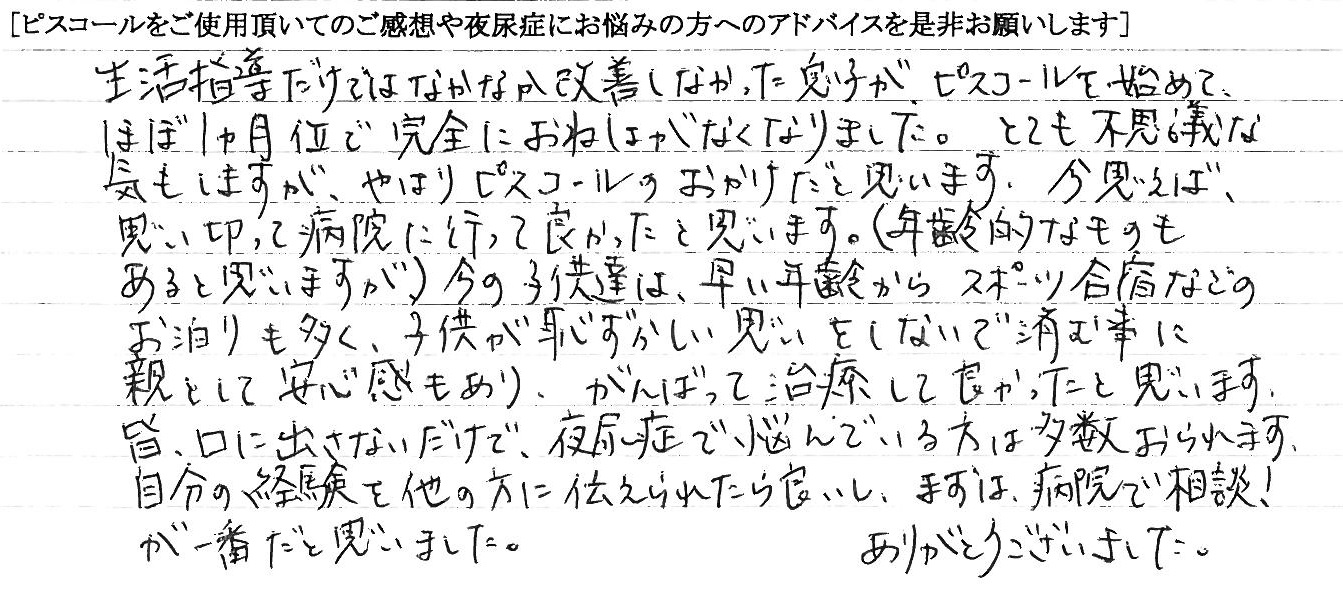 [ピスコールをご使用頂いてのご感想や夜尿症にお悩みの方へのアドバイスを是非お願いします]
生活指導だけではなかなか改善しなかった息子が、ピスコールを始めて、
ほぼ1ヵ月位で完全におねしょがなくなりました。とても不思議な
気もしますが、やはりピスコールのおかげだと思います。今思えば、
思い切って病院に行って良かったと思います。(年齢的なものも
あると思いますが)今の子供達は、早い年齢からスポーツ合宿などの
お泊りも多く、子供が恥ずかしい思いをしないで済む事に
親として安心感もあり、がんばって治療して良かったと思います。
皆、口に出さないだけで、夜尿症で悩んでいる方は多数おられます。
自分の経験を他の方に伝えられたら良いし、まずは、病院で相談!
が一番だと思いました。 ありがとうございました。